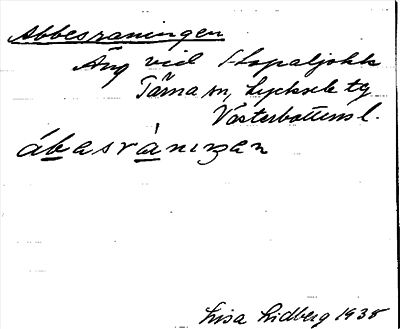 Abbesraningen
Äng vid Stopaljokk
Tärna sn, Lycksele tg
Västerbottens l.
ábasránıŋan
Lisa Lidberg 1938